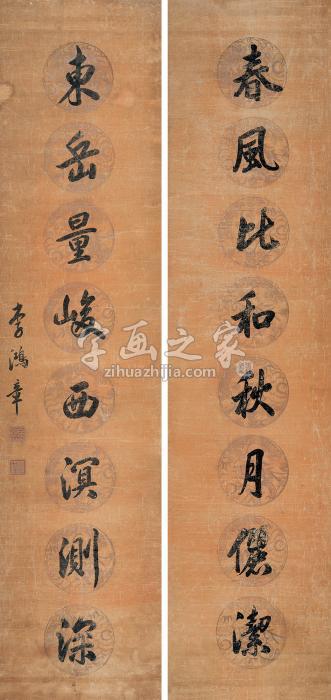 春風比和秋月儷潔
東岳量峻西溟測深
李鴻章
字画之家
zihuazhijia.com